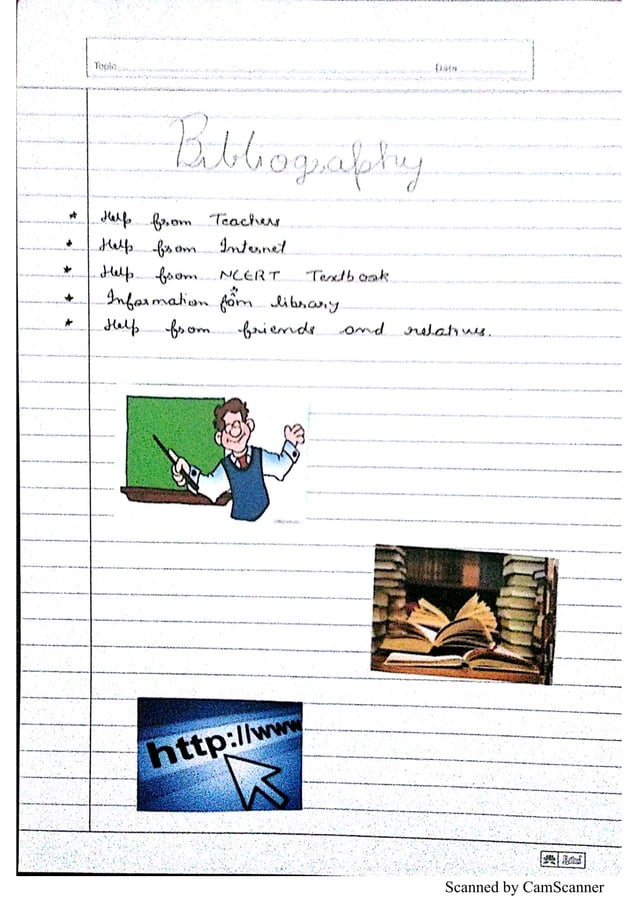 Topic
Date
Bibliography
* Help from Teachers
* Help from Internet
* Help from NCERT Textbook
* Information fom library
* Help from friends and relatives.
http://www
Scanned by CamScanner